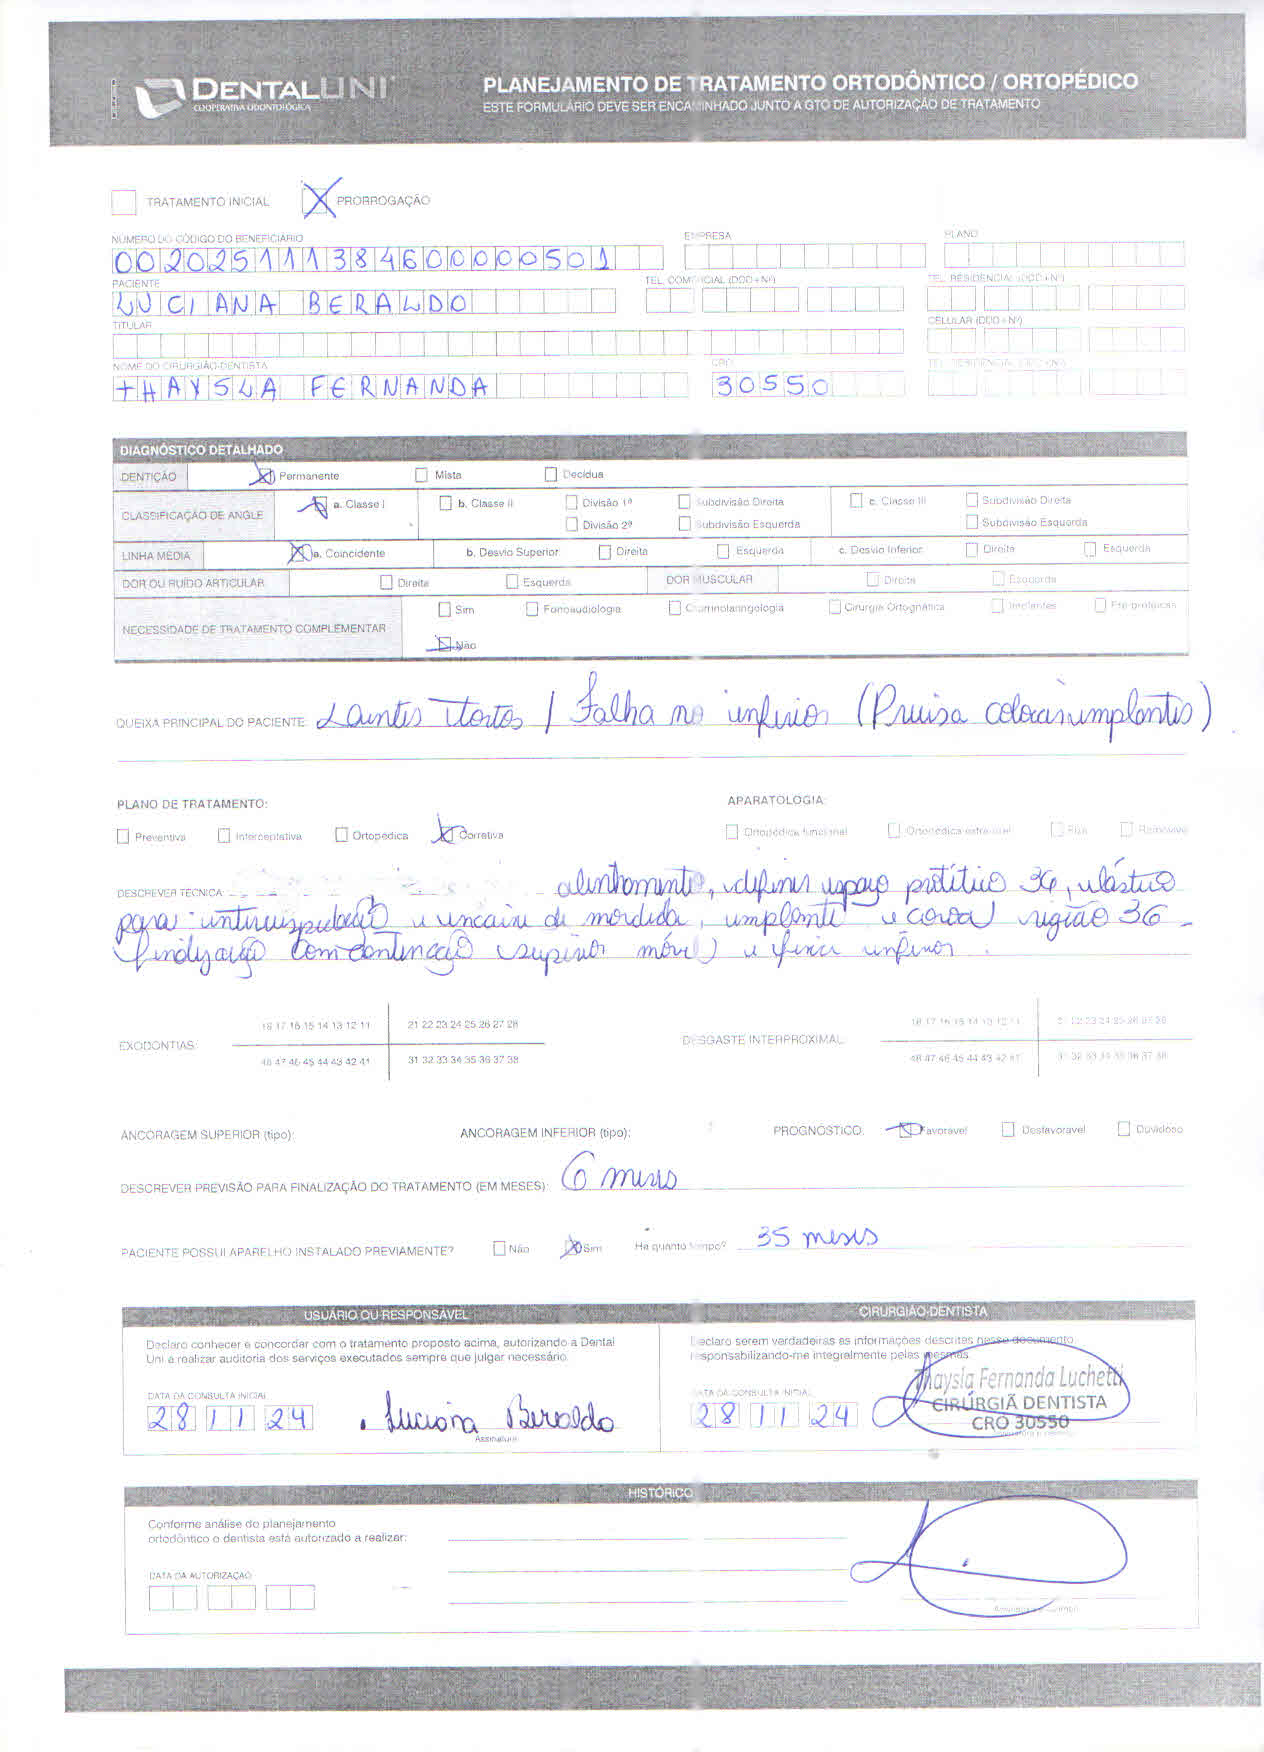 DENTALUNI
COOPERATIVA ODONTOLÓGICA
PLANEJAMENTO DE TRATAMENTO ORTODÔNTICO / ORTOPÉDICO
ESTE FORMULÁRIO DEVE SER ENCAMINHADO JUNTO A GTO DE AUTORIZAÇÃO DE TRATAMENTO
TRATAMENTO INICIAL X PRORROGAÇÃO
NÚMERO DO CÓDIGO DO BENEFICIÁRIO EMPRESA PLANO
002025111384600000501
PACIENTE TEL. COMERCIAL (DDD+Nº) TEL. RESIDENCIAL (DDD+Nº)
LUCIANA BERALDO
TITULAR CELULAR (DDD+Nº)
NOME DO CIRURGIÃO-DENTISTA CRO TEL. RESIDENCIAL (DDD+Nº)
THAYSLA FERNANDA 30550
DIAGNÓSTICO DETALHADO
DENTIÇÃO X Permanente Mista Decídua
CLASSIFICAÇÃO DE ANGLE X a. Classe I b. Classe II Divisão 1ª Subdivisão Direita c. Classe III Subdivisão Direita
Divisão 2ª Subdivisão Esquerda Subdivisão Esquerda
LINHA MÉDIA X a. Coincidente b. Desvio Superior Direita Esquerda c. Desvio Inferior Direita Esquerda
DOR OU RUÍDO ARTICULAR Direita Esquerda DOR MUSCULAR Direita Esquerda
NECESSIDADE DE TRATAMENTO COMPLEMENTAR Sim Fonoaudiologia Otorrinolaringologia Cirurgia Ortognática Implantes Pré-protéticas
X Não
QUEIXA PRINCIPAL DO PACIENTE: Dentes tortos / Falha no inferior (Precisa colocar implantes)
PLANO DE TRATAMENTO: APARATOLOGIA:
Preventiva Interceptativa Ortopédica X Corretiva Ortopédica funcional Ortopédica extra-oral Fixa Removível
DESCREVER TÉCNICA: alinhamento, definir espaço protético 36, elástico
para intercuspidação e encaixe de mordida, implante e coroa região 36 -
finalização com contenção superior móvel e fixa inferior.
18 17 16 15 14 13 12 11 21 22 23 24 25 26 27 28 18 17 16 15 14 13 12 11 21 22 23 24 25 26 27 28
EXODONTIAS: DESGASTE INTERPROXIMAL:
48 47 46 45 44 43 42 41 31 32 33 34 35 36 37 38 48 47 46 45 44 43 42 41 31 32 33 34 35 36 37 38
ANCORAGEM SUPERIOR (tipo): ANCORAGEM INFERIOR (tipo): PROGNÓSTICO: X Favorável Desfavorável Duvidoso
DESCREVER PREVISÃO PARA FINALIZAÇÃO DO TRATAMENTO (EM MESES): 6 meses
PACIENTE POSSUI APARELHO INSTALADO PREVIAMENTE? Não X Sim Há quanto tempo? 35 meses
USUÁRIO OU RESPONSÁVEL CIRURGIÃO-DENTISTA
Declaro conhecer e concordar com o tratamento proposto acima, autorizando a Dental
Uni a realizar auditoria dos serviços executados sempre que julgar necessário.
Declaro serem verdadeiras as informações descritas nesse documento,
responsabilizando-me integralmente pelas mesmas.
DATA DA CONSULTA INICIAL DATA DA CONSULTA INICIAL
28 11 24 Luciana Beraldo 28 11 24
Assinatura
Thaysla Fernanda Luchetti
CIRURGIÃ DENTISTA
CRO 30550
HISTÓRICO
Conforme análise do planejamento
ortodôntico o dentista está autorizado a realizar:
DATA DA AUTORIZAÇÃO